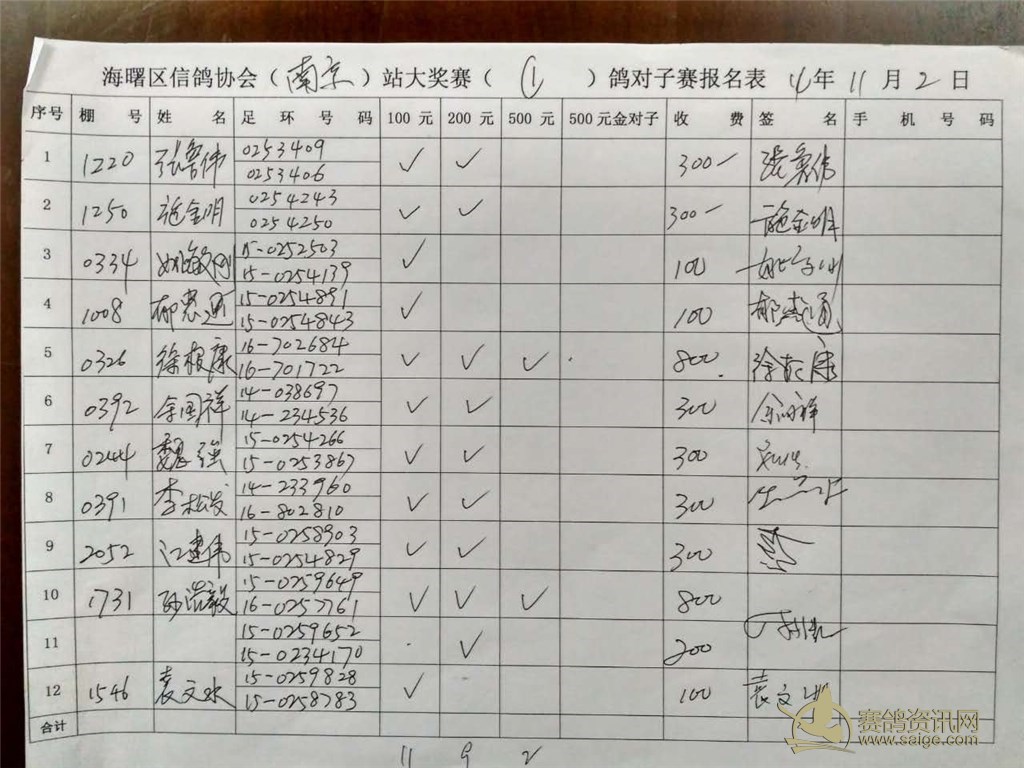 海曙区信鸽协会（南京）站大奖赛（ 1 ）鸽对子赛报名表 4年 11月 2日
序号 棚号 姓名 足环号码 100元 200元 500元 500元金对子 收费 签名 手机号码
1 1220 张鲁伟 0253409 ✓ ✓ 300一 張鲁伟
0253406
2 1250 施金明 0254243 ✓ ✓ 300一 施金明
0254250
3 0334 姚敏刚 15-0252503 ✓ 100
15-0254139
4 1008 郁惠通 15-0254891 ✓ 100 郁惠通
15-0254843
5 0326 徐根康 16-702684 ✓ ✓ ✓ 800 徐根康
16-701722
6 0392 余国祥 14-038697 ✓ ✓ 300 余国祥
14-234536
7 0244 魏强 15-0254266 ✓ ✓ 300
15-0253867
8 0391 李松发 14-233960 ✓ ✓ 300
16-802810
9 2052 江建伟 15-0258903 ✓ ✓ 300
15-0254829
10 1731 15-0259649 ✓ ✓ ✓ 800
16-0257761
11 15-0259652 ✓ 200
15-0234170
12 1546 袁文水 15-0259828 ✓ 100 袁文水
15-0258783
合计
11 9 2
赛鸽资讯网
www.saige.com